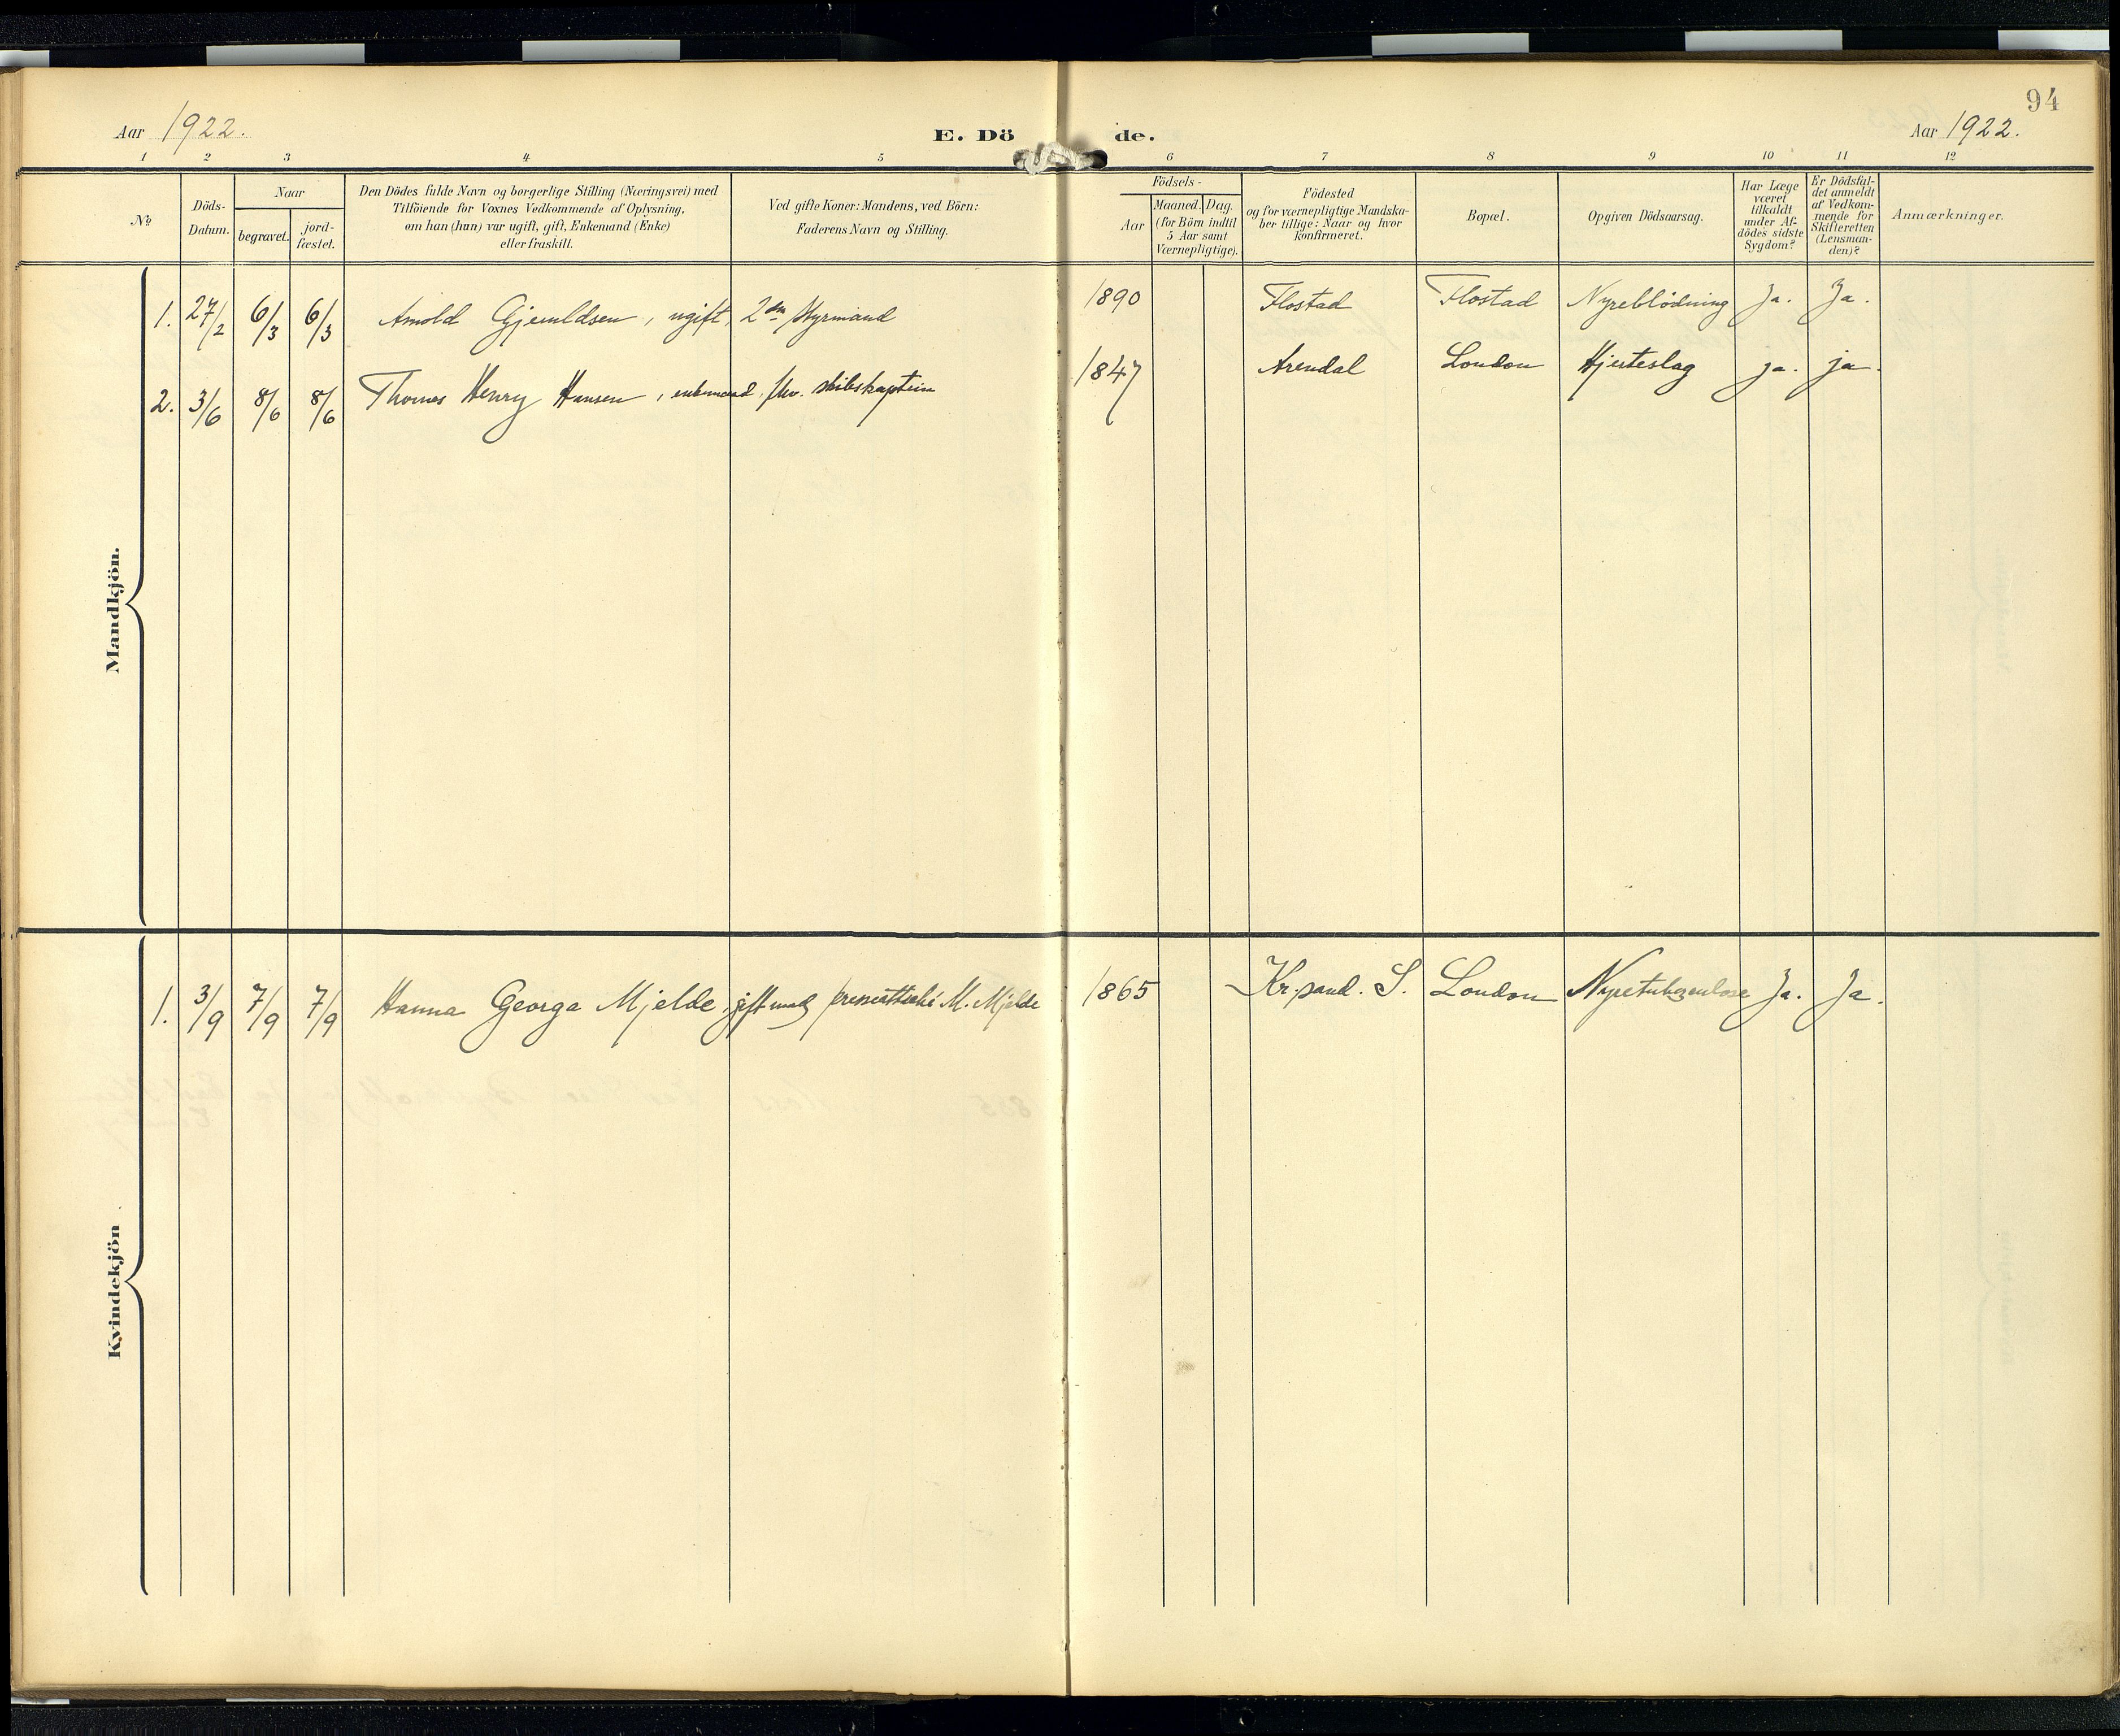 94
Aar 1922.
E. Dö de.
Aar 1922.
1 2 3 4 5 6 7 8 9 10 11 12
No
Döds-
Datum.
Naar
begravet.
jord-
fæstet.
Den Dödes fulde Navn og borgerlige Stilling (Næringsvei) med
Tilföiende for Voxnes Vedkommende af Oplysning,
om han (hun) var ugift, gift, Enkemand (Enke)
eller fraskilt.
Ved gifte Koner: Mandens, ved Börn:
Faderens Navn og Stilling.
Födsels-
Aar
Maaned. Dag.
(for Börn indtil
5 Aar samt
Værnepligtige).
Födested
og for værnepligtige Mandska-
ber tillige: Naar og hvor
konfirmeret.
Bopæl.
Opgiven Dödsaarsag.
Har Læge
været
tilkaldt
under Af-
dödes sidste
Sygdom?
Er Dödsfal-
det anmeldt
af Vedkom-
mende for
Skifteretten
(Lensman-
den)?
Anmærkninger.
Mandkjön.
1. 27/2 6/3 6/3 Arnold Gjeruldsen, ugift, 2den Styrmand 1890 Flostad Flostad Nyreblödning Ja. Ja.
2. 3/6 8/6 8/6 Thomas Henry Hansen, enkemand, fhv. skibskaptein 1847 Arendal London Hjerteslag ja. ja.
Kvindekjön
1. 3/9 7/9 7/9 Hanna Georga Mjelde, gift med M. Mjelde 1865 Kr.sand. S. London Nyretuberculose Ja. Ja.